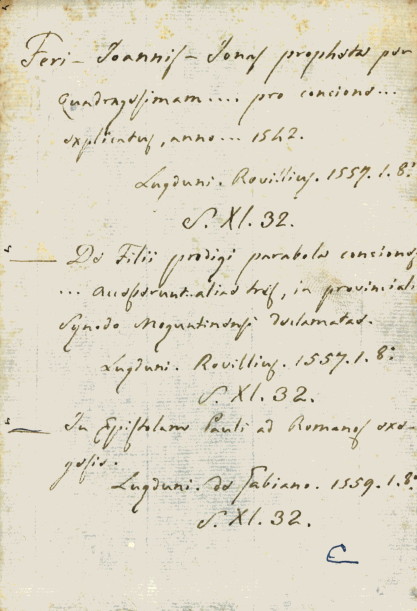 Feri - Joannis - Jonas propheta per
Quadragesimam .... pro concione ...
explicatus, anno ... 1542.
Lugduni. Rovillius. 1557. 1. 8:
S. XI. 32.
s
— De Filii prodigi parabola conciones
... Accesserunt aliae tres, in provinciali
Synodo Moguntinensi declamatae.
Lugduni. Rovillius. 1557. 1. 8:
S. XI. 32.
s
— In Epistolam Pauli ad Romanos exe-
gesis.
Lugduni. de Gabiano. 1559. 1. 8:
S. XI. 32.
C